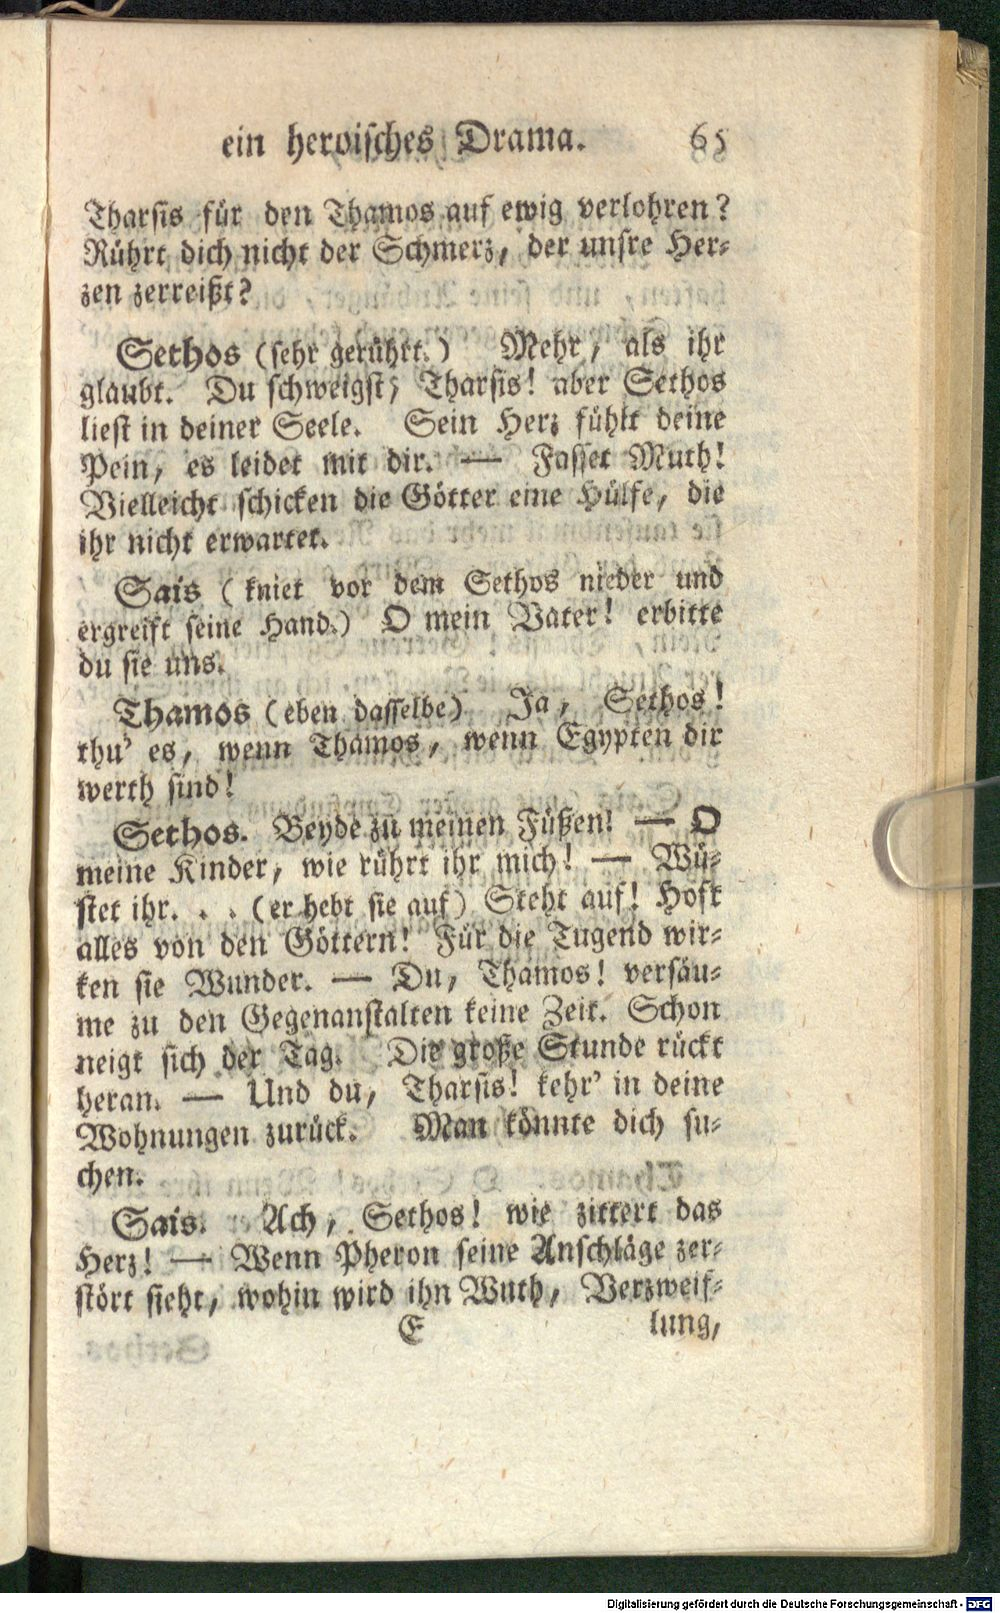 ein heroisches Drama. 65
Tharsis für den Thamos auf ewig verlohren?
Rührt dich nicht der Schmerz, der unsre Her-
zen zerreißt?
Sethos (sehr gerührt.) Mehr, als ihr
glaubt. Du schweigst, Tharsis! aber Sethos
liest in deiner Seele. Sein Herz fühlt deine
Pein, es leidet mit dir. — Fasset Muth!
Vielleicht schicken die Götter eine Hülfe, die
ihr nicht erwartet.
Sais (kniet vor dem Sethos nieder und
ergreift seine Hand.) O mein Vater! erbitte
du sie uns.
Thamos (eben dasselbe) Ja, Sethos!
thu' es, wenn Thamos, wenn Egypten dir
werth sind!
Sethos. Beyde zu meinen Füßen! — O
meine Kinder, wie rührt ihr mich! — Wü-
stet ihr. . . (er hebt sie auf) Steht auf! Hoft
alles von den Göttern! Für die Tugend wir-
ken sie Wunder. — Du, Thamos! versäu-
me zu den Gegenanstalten keine Zeit. Schon
neigt sich der Tag. Die große Stunde rückt
heran. — Und du, Tharsis! kehr' in deine
Wohnungen zurück. Man könnte dich su-
chen.
Sais. Ach, Sethos! wie zittert das
Herz! — Wenn Pheron seine Anschläge zer-
stört sieht, wohin wird ihn Wuth, Verzweif-
E lung,
Digitalisierung gefördert durch die Deutsche Forschungsgemeinschaft - DFG